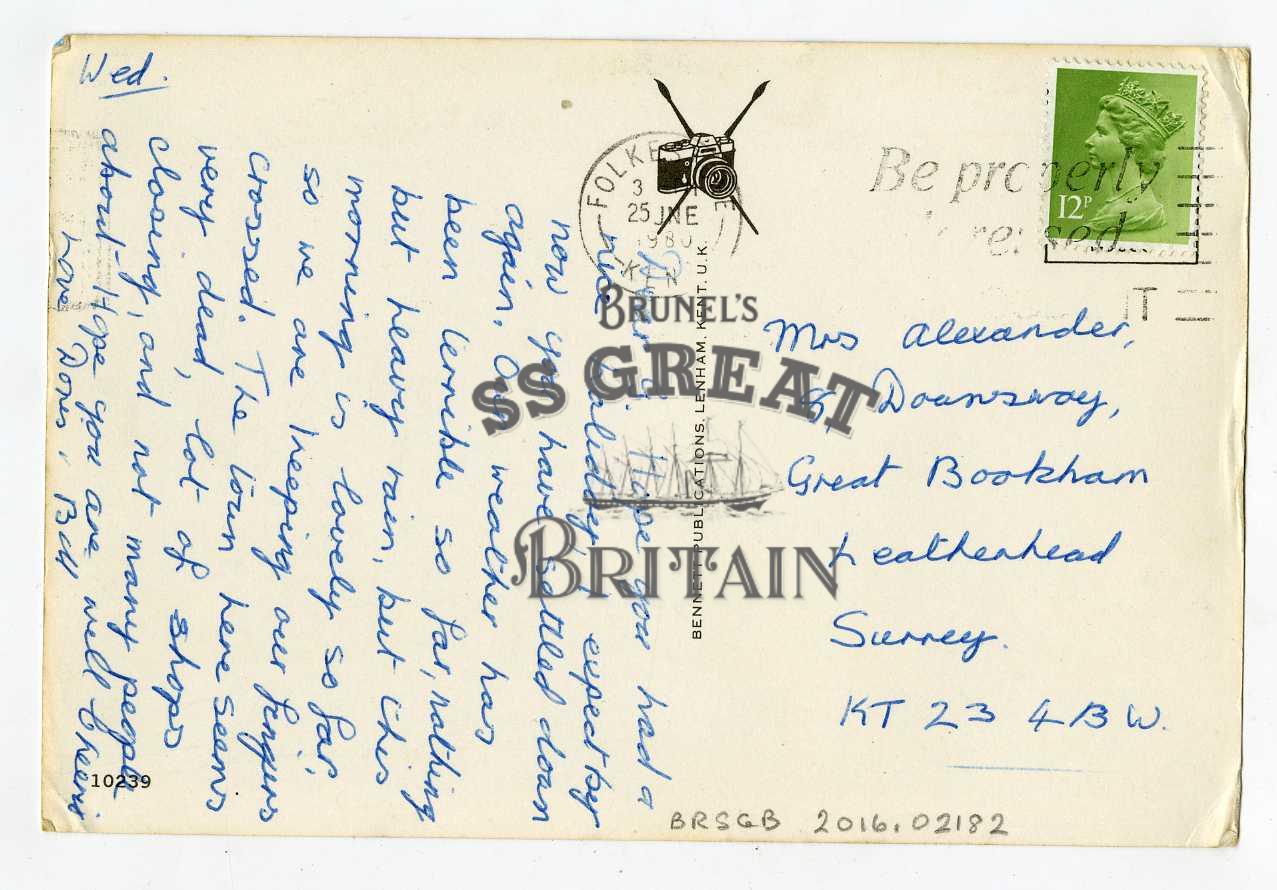 Wed.
Dear        Hope you had a
nice holiday, expect by
now you have settled down
again. Our weather has
been terrible so far, nothing
but heavy rain, but this
morning is lovely so far,
so we are keeping our fingers
crossed. The town here seems
very dead, lot of shops
closing, and not many people
about. Hope you are well Cheerio
Love Doris, Bill
10239
BENNETT PUBLICATIONS, LENHAM, KENT. U.K.
FOLKE
3
25 JNE
1980
Be properly
12P
IT
Mrs Alexander,
Downsway,
Great Bookham
Leatherhead
Surrey.
KT 23 4BW.
BRSGB 2016.02182
BRUNEL'S
SS GREAT
BRITAIN